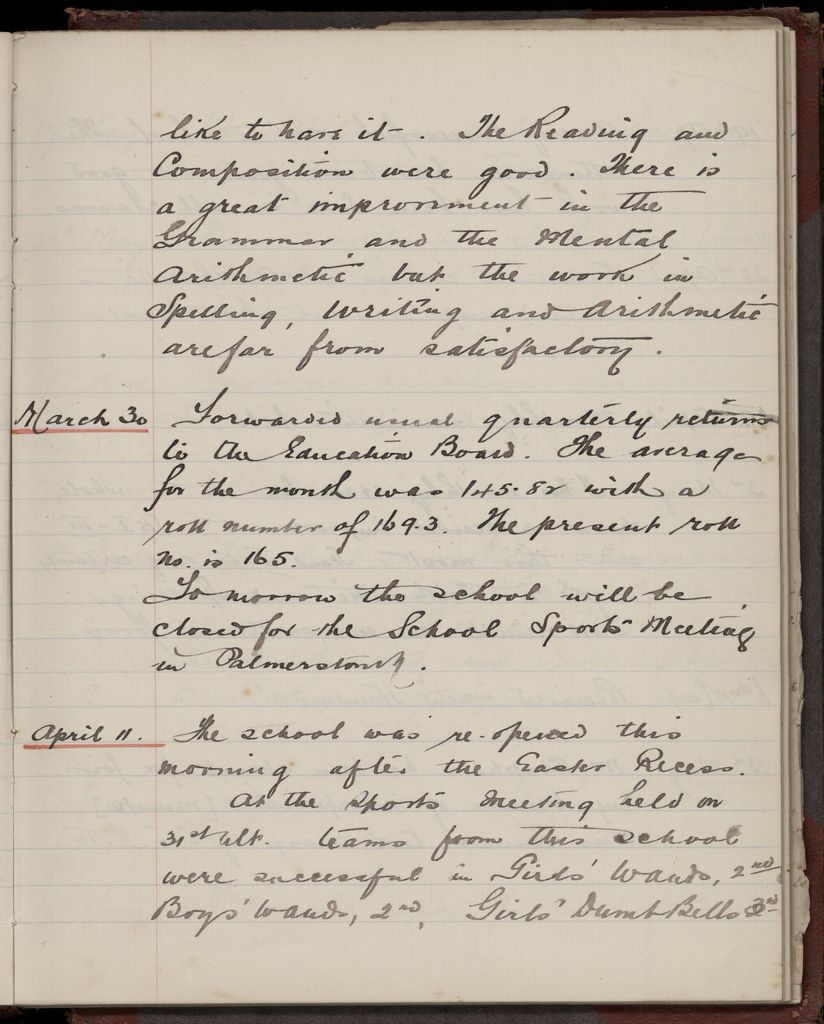 like to have it. The Reading and
Composition were good. There is
a great improvement in the
Grammar and the Mental
Arithmetic but the work in
Spelling, Writing and Arithmetic
are far from satisfactory.
March 30 Forwarded usual quarterly returns
to the Education Board. The average
for the month was 145.82 with a
roll number of 169.3. The present roll
no. is 165.
To morrow the school will be
closed for the School Sports Meeting
in Palmerston N.
April 11. The school was re-opened this
morning after the Easter Recess.
At the Sports Meeting held on
31st ult. teams from this school
were successful in Girls' Wands, 2nd
Boys' Wands, 2nd, Girls' Dumb Bells 3rd